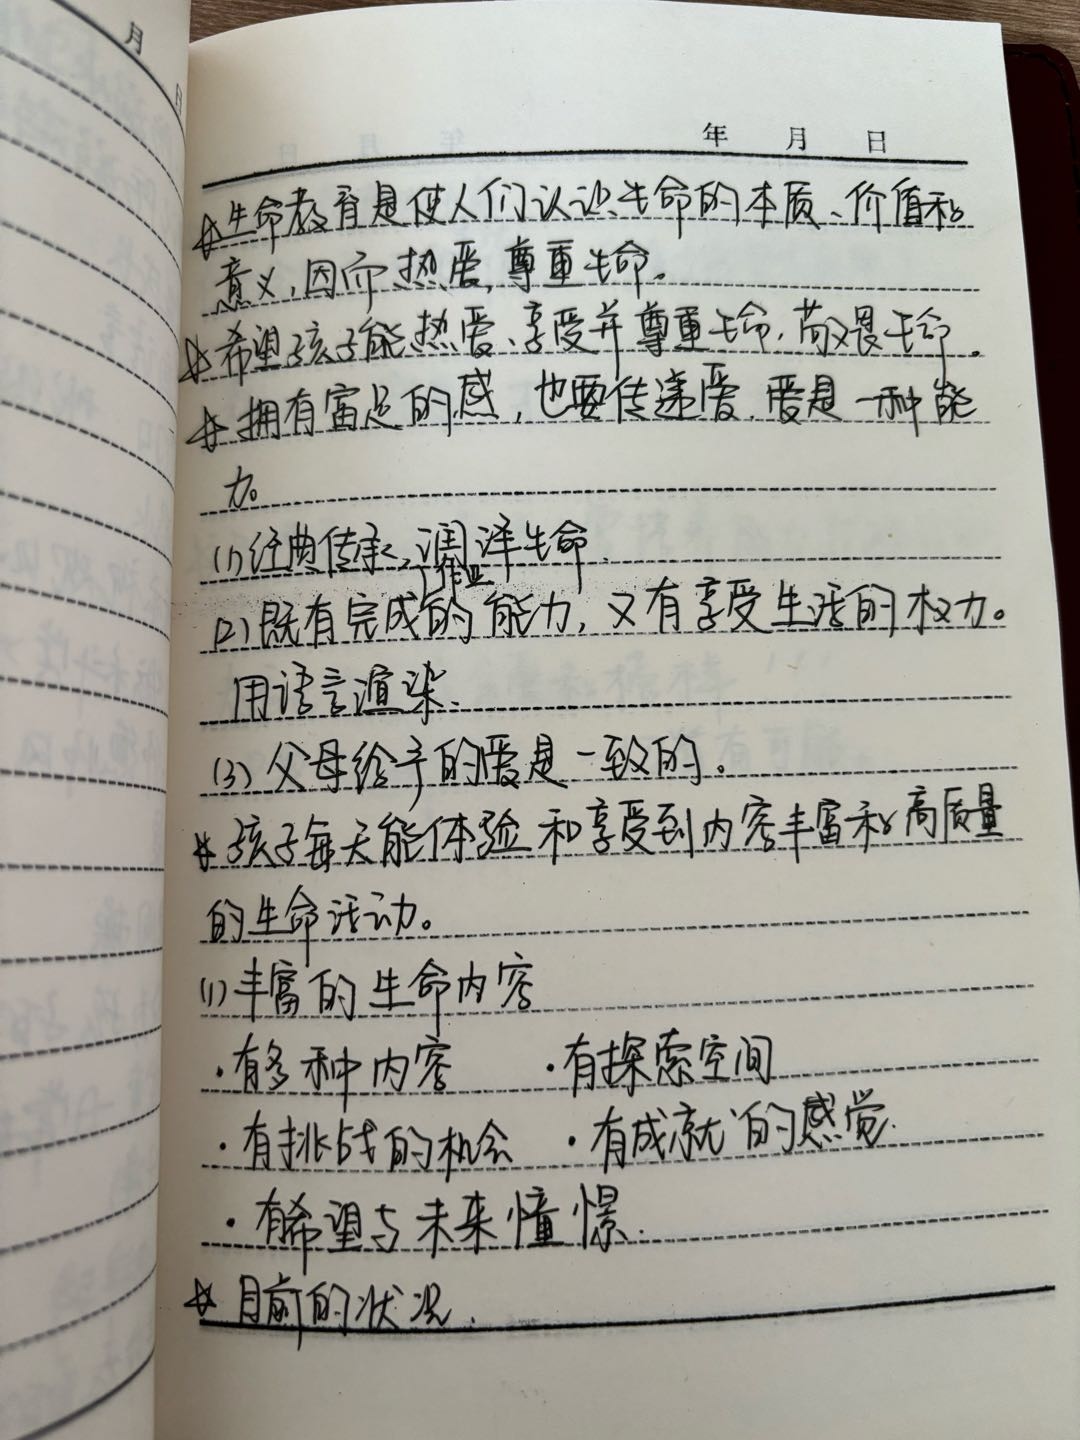 月
日
年 月 日
☆生命教育是使人们认识生命的本质、价值和
意义,因而热爱,尊重生命。
☆希望孩子能热爱、享受并尊重生命,敬畏生命。
☆拥有富足的感,也要传递爱,爱是一种能
力。
(1)经典传承,润泽生命.
作业
(2)既有完成的能力,又有享受生活的权力。
用语言渲染.
(3)父母给予的爱是一致的。
☆孩子每天能体验和享受到内容丰富和高质量
的生命活动。
(1)丰富的生命内容
·有多种内容 ·有探索空间
·有挑战的机会 ·有成就的感觉.
·有希望与未来憧憬.
☆目前的状况.